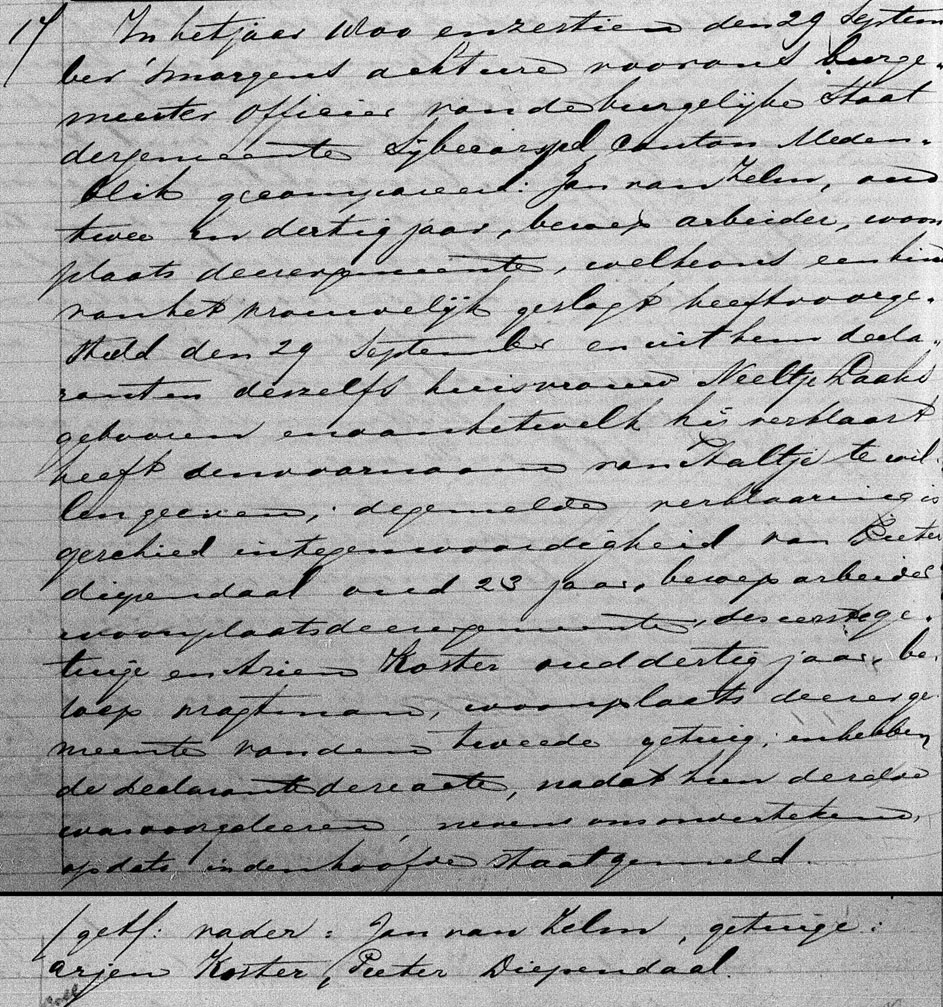 17 In het jaar 1800 en zestien den 29 Septem
ber 'smorgens acht ure voor ons burge„
meester officier van de burgelijke Staat
der gemeente Sijbecarspel, Canton Meden„
blik gecompareerd: Jan van Zelm, oud
twee en dertig jaar, beroep arbeider, woon
plaats deeser gemeente, welke ons een kind
van het vrouwelijk geslagt heeft voorge„
steld den 29 September en uit hem decla„
rant en deszelfs huisvrouw Neeltje Daaks
gebooren en aan hetwelk hij verklaart
heeft den voornaam van Aaltje te wil„
len geeven; de gemelde verklaaring is
geschied in tegenwoordigheid van Pieter
diependaal oud 23 jaar, beroep arbeider
woonplaats deeser gemeente, des eerste ge„
tuige en Arien Koster oud dertig jaar, be„
roep vragtman, woonplaats deeser ge
meente van den tweede getuig; en hebben
de declarant deze acte, nadat hun deselve
was voorgeleesen, nevens ons ondertekend,
op dato in den hoofde staat gemeld.
(get/: vader: Jan van Zelm, getuige:
Arjen Koster, Pieter Diependaal.